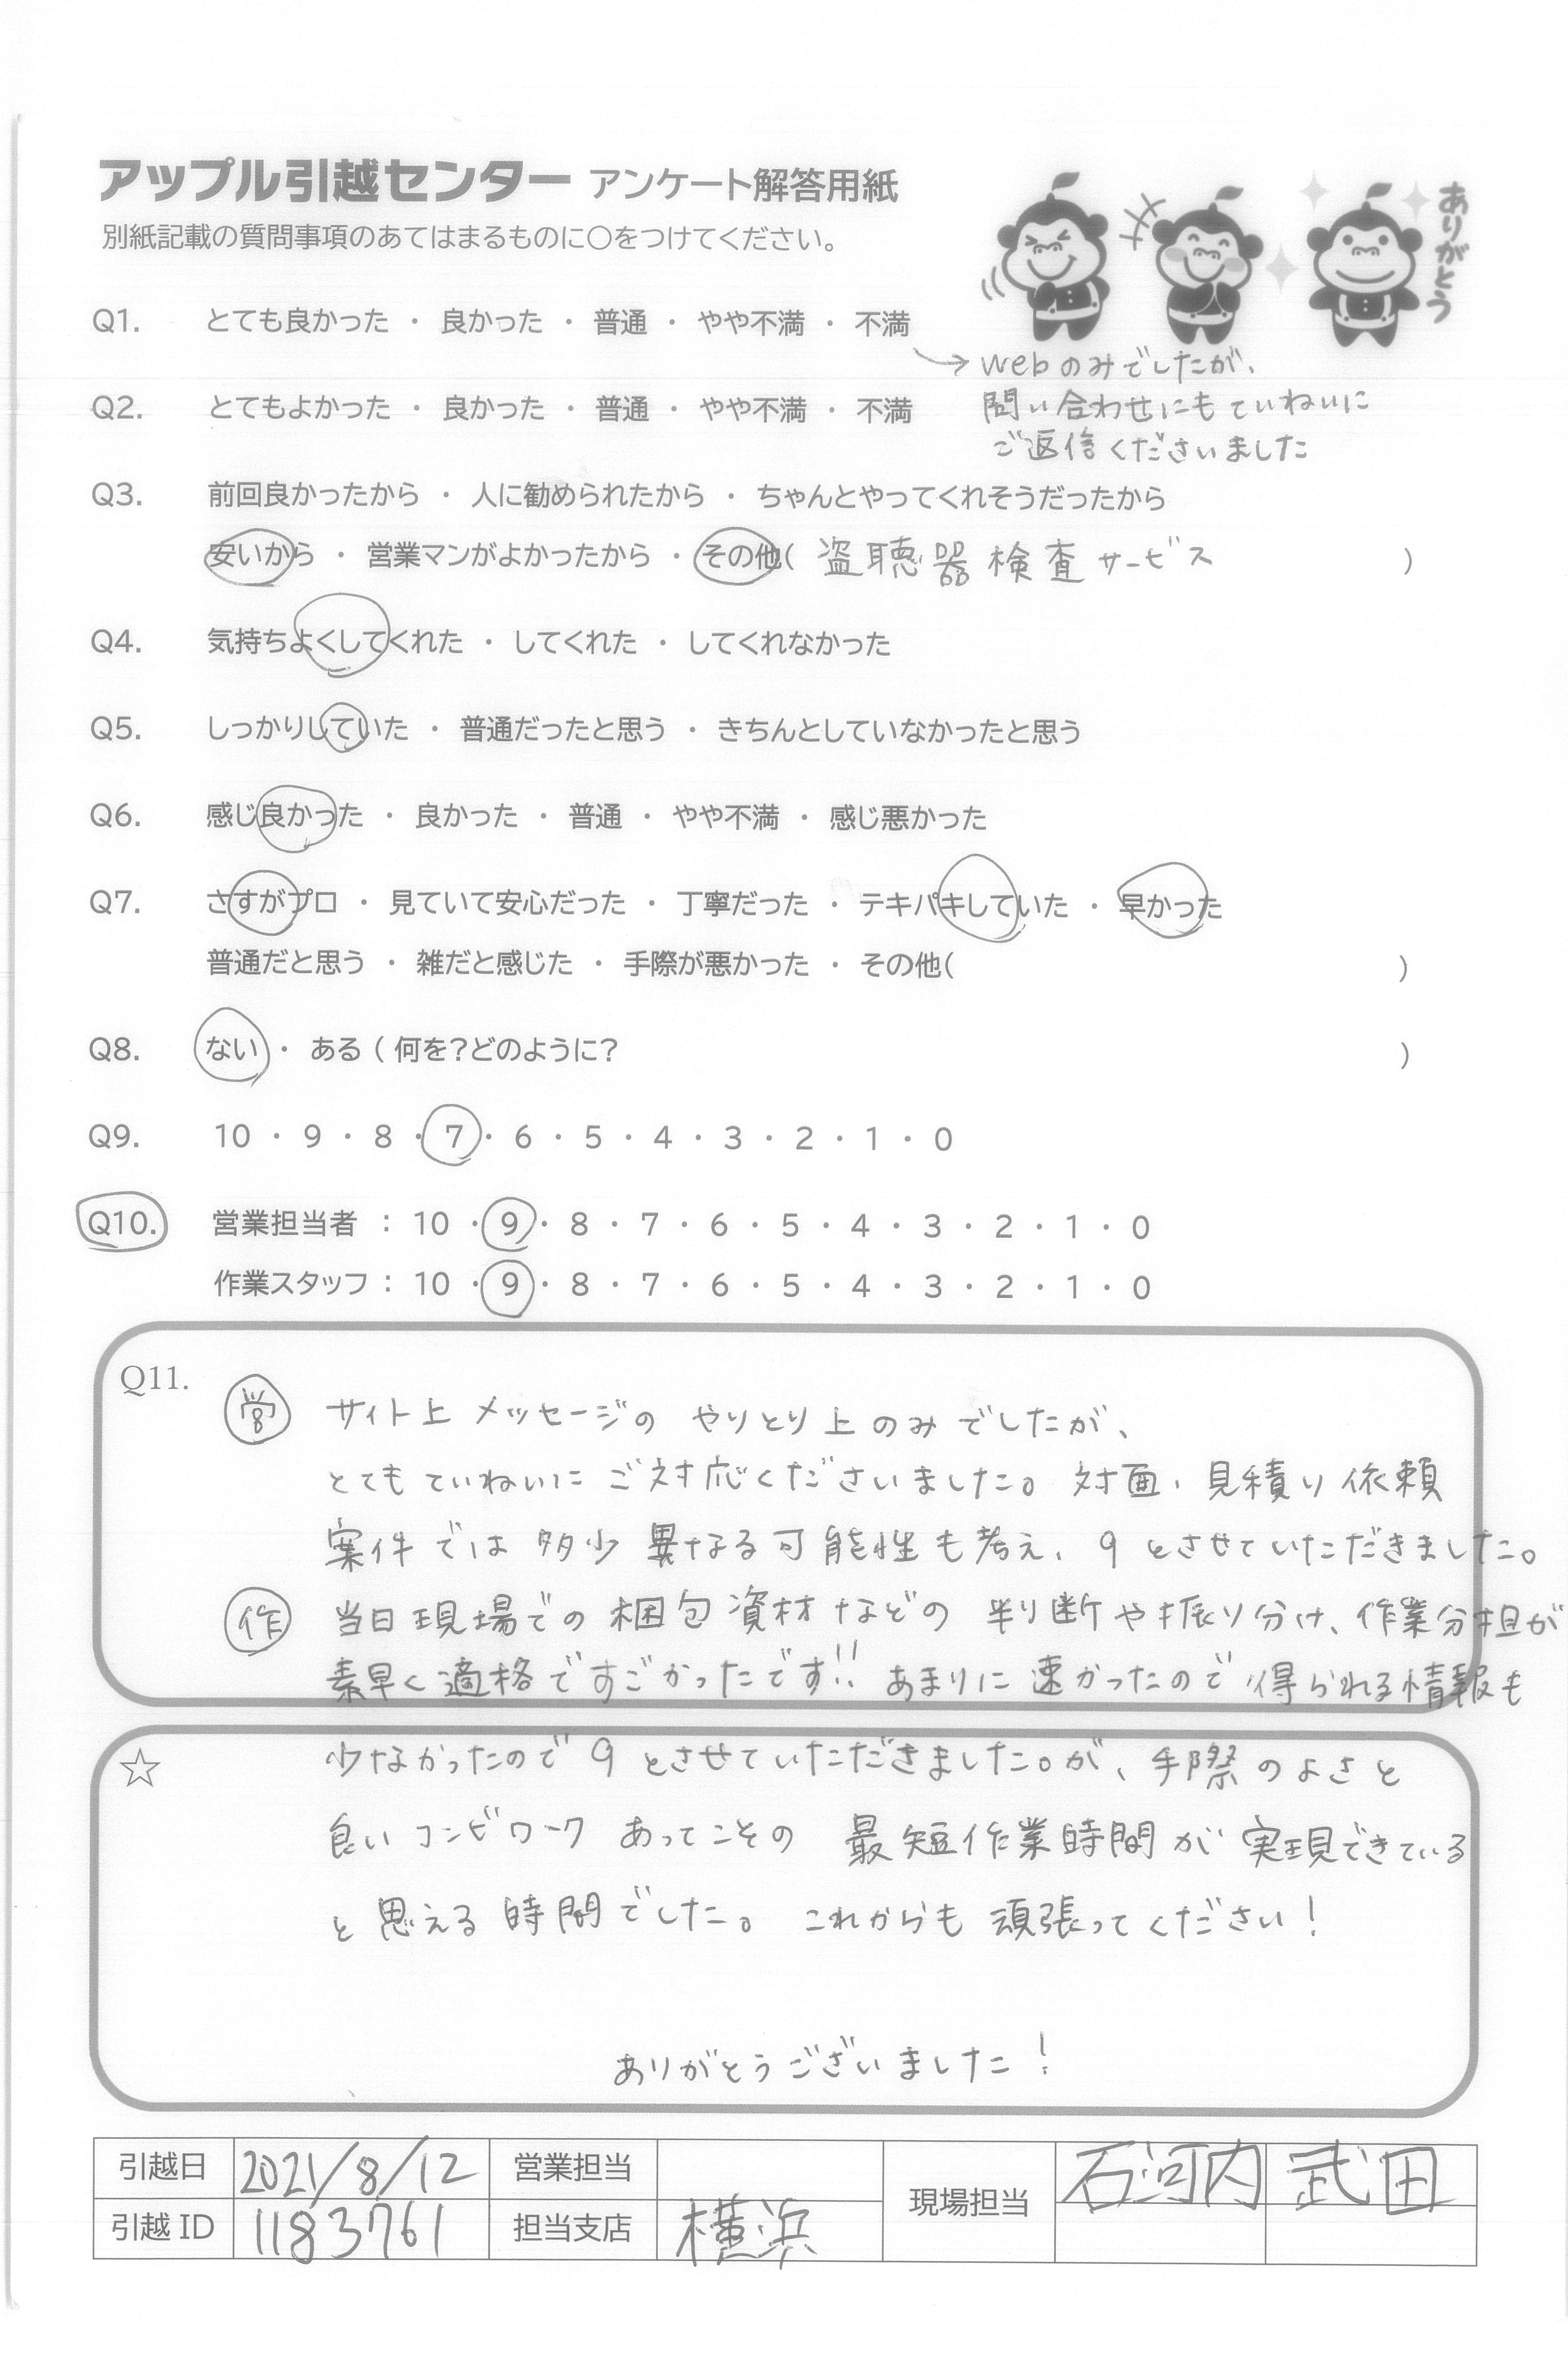 アップル引越センター アンケート解答用紙
別紙記載の質問事項のあてはまるものに○をつけてください。
ありがとう
Q1. とても良かった ・ 良かった ・ 普通 ・ やや不満 ・ 不満
→ webのみでしたが、
問い合わせにもていねいに
ご返信くださいました
Q2. とてもよかった ・ 良かった ・ 普通 ・ やや不満 ・ 不満
Q3. 前回良かったから ・ 人に勧められたから ・ ちゃんとやってくれそうだったから
安いから ・ 営業マンがよかったから ・ その他( 盗聴器検査サービス )
Q4. 気持ちよくしてくれた ・ してくれた ・ してくれなかった
Q5. しっかりしていた ・ 普通だったと思う ・ きちんとしていなかったと思う
Q6. 感じ良かった ・ 良かった ・ 普通 ・ やや不満 ・ 感じ悪かった
Q7. さすがプロ ・ 見ていて安心だった ・ 丁寧だった ・ テキパキしていた ・ 早かった
普通だと思う ・ 雑だと感じた ・ 手際が悪かった ・ その他( )
Q8. ない ・ ある ( 何を?どのように? )
Q9. 10 ・ 9 ・ 8 ・ 7 ・ 6 ・ 5 ・ 4 ・ 3 ・ 2 ・ 1 ・ 0
Q10. 営業担当者 : 10 ・ 9 ・ 8 ・ 7 ・ 6 ・ 5 ・ 4 ・ 3 ・ 2 ・ 1 ・ 0
作業スタッフ : 10 ・ 9 ・ 8 ・ 7 ・ 6 ・ 5 ・ 4 ・ 3 ・ 2 ・ 1 ・ 0
Q11. 営 サイト上 メッセージの やりとり上のみでしたが、
とてもていねいにご対応くださいました。対面、見積り依頼
案件では多少異なる可能性も考え、9とさせていただきました。
作 当日現場での梱包資材などの判断や振り分け、作業分担が
素早く適格ですごかったです!! あまりに速かったので得られる情報も
☆ 少なかったので9とさせていただきました。が、手際のよさと
良いコンビワークあってこその 最短作業時間が実現できている
と思える時間でした。これからも頑張ってください!
ありがとうございました!
引越日 2021/8/12 営業担当 現場担当 石河内 武田
引越ID 1183761 担当支店 横浜